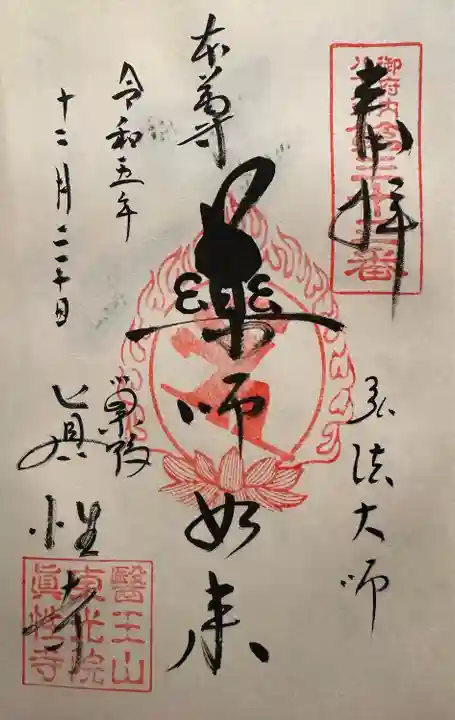 奉拝
御府内八十八ヶ所第三十三番
弘法大師
本尊
薬師如来
令和五年
十二月二十日
眞性寺
醫王山
東光院
眞性寺